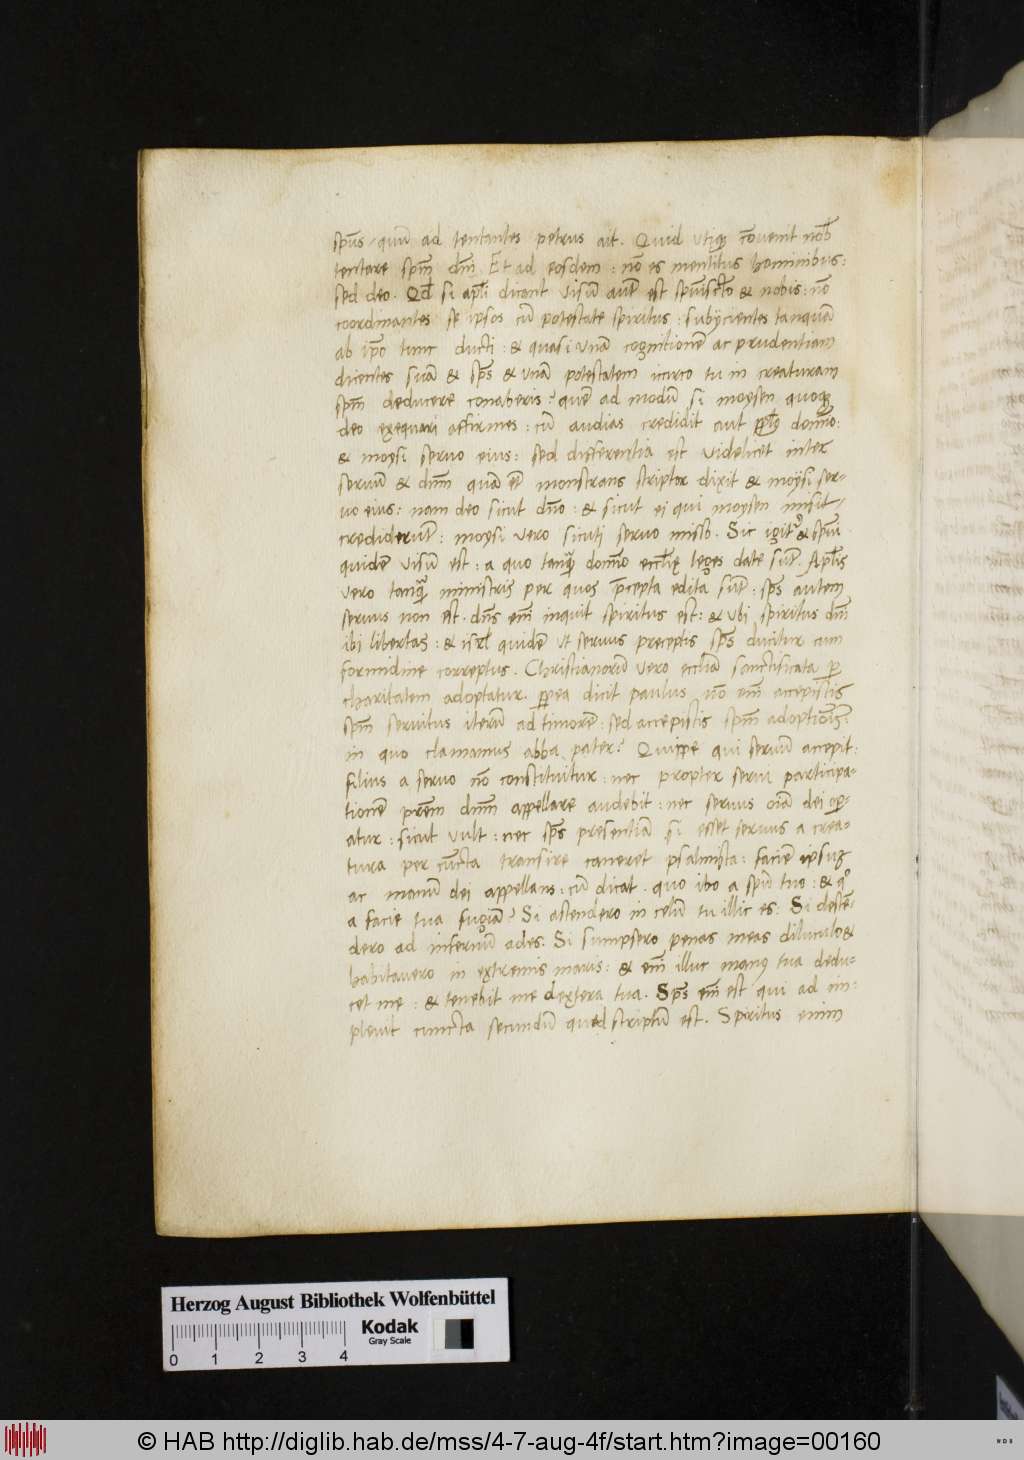 sp̄us / quū ad tentantes petrus ait. Quid utiqȝ cōuenit nob̄
tentare sp̄m dn̄i. Et ad eosdem : nō es mentitus hominibus :
sed deo. Qđ si apl̄i dicant uisū aut̄ est spūiscto & nobis : nō
coordinantes se ipsos cū potestate spiritus : subycientes tanquā
ab ip̄o tunc ducti : & quasi unā cognitionē ac prudentiam
dicentes suā & sp̄s & unā potestatem
sp̄m deducere conaberis? quē ad modū si moysen quoqȝ
deo exequari affirmes : cū audias credidit aut domīo :
& moysi seruo eius : sed differentia est uidelicet inter
seruū & dnm̄ quā eē monstrans scriptor dixit & moysi ser-
uo eius : nam deo sicut dn̄o : & sicut ei qui moysen misit
crediderūt : moysi uero sicuti seruo misso. Sic igit & spūi
quidē uisū est : a quo tanqȝ domīo eccl̄ię leges date sūt. Apl̄is
uero tanqȝ ministris per quos p̄cepta edita sūt : sp̄s autem
seruus non est. dn̄s em̄ inquit spiritus est : & ubi spiritus dn̄i
ibi libertas : & isrl̄ quidē ut seruus preceptis sp̄s ducitur cum
formidine correptus. Christianorū uero eccl̄ia sanctificata p̱
charitatem adoptatur. ꝓpea dicit paulus nō em̄ accepistis
sp̄m seruitus iterū ad timorē : sed accepistis sp̄m adoptiōis :
in quo clamamus abba pater? Quippe qui seruū accepit :
filius a seruo nō constituitur : nec propter serui participa-
tionē prēm dnm̄ appellare audebit : nec seruus oīa dei op̱-
atur : sicut uult : nec sp̄s presentiā si esset seruus a crea-
tura per cūcta transire caneret psalmista : faciē ipsuȝ
ac manū dei appellans : cū dicat. quo ibo a spū tuo : & q°
a facie tua fugiā? Si ascendero in celū tu illic es : Si descē-
dero ad infernū ades : Si sumpsero penas meas diluculo &
habitauero in extremis maris : & em̄ illuc manꝰ tua dedu-
cet me : & tenebit me dextera tua. Sp̄s em̄ est qui ad im-
pleuit cuncta secundū quod scriptū est. Spiritus enim
Herzog August Bibliothek Wolfenbüttel
Kodak
Gray Scale
0 1 2 3 4
© HAB http://diglib.hab.de/mss/4-7-aug-4f/start.htm?image=00160